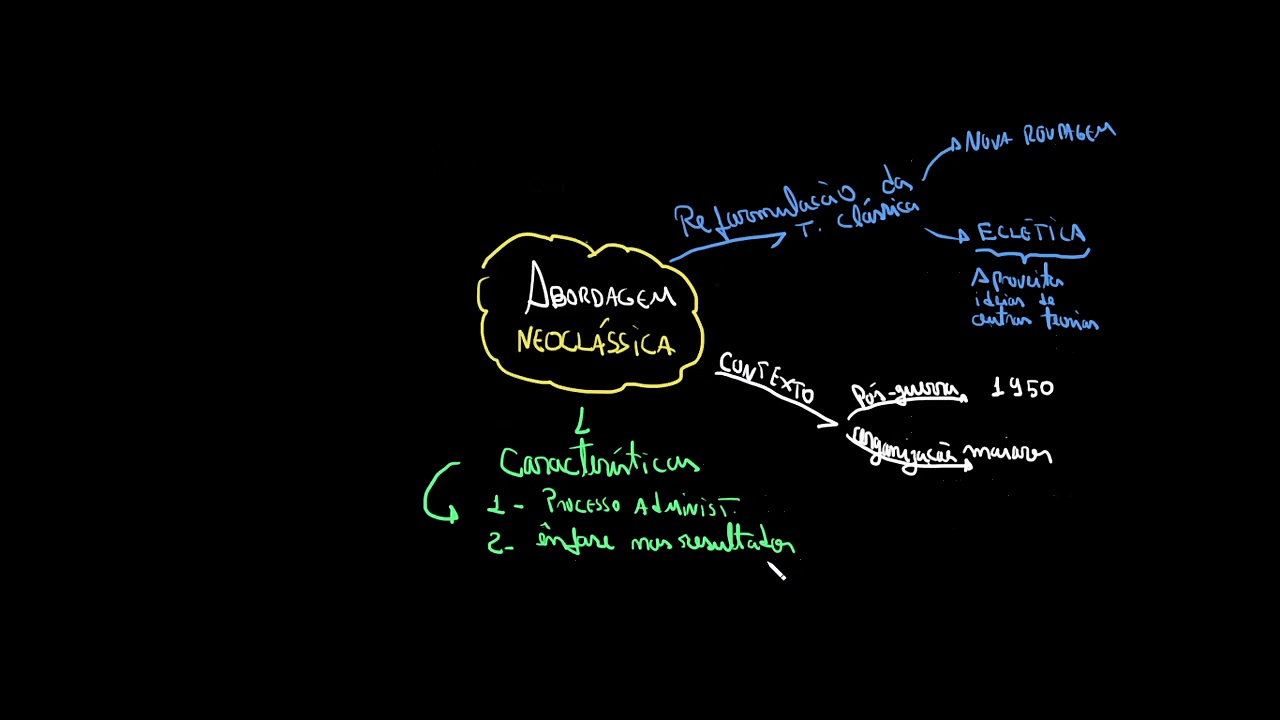 ABORDAGEM
NEOCLÁSSICA
Reformulação das
T. Clássica
NOVA ROUPAGEM
ECLÉTICA
Aproveita
ideias de
outras teorias
CONTEXTO
Pós-guerra 1950
organização maiores
Características
1 - PROCESSO ADMINIST.
2- ênfase nos resultados